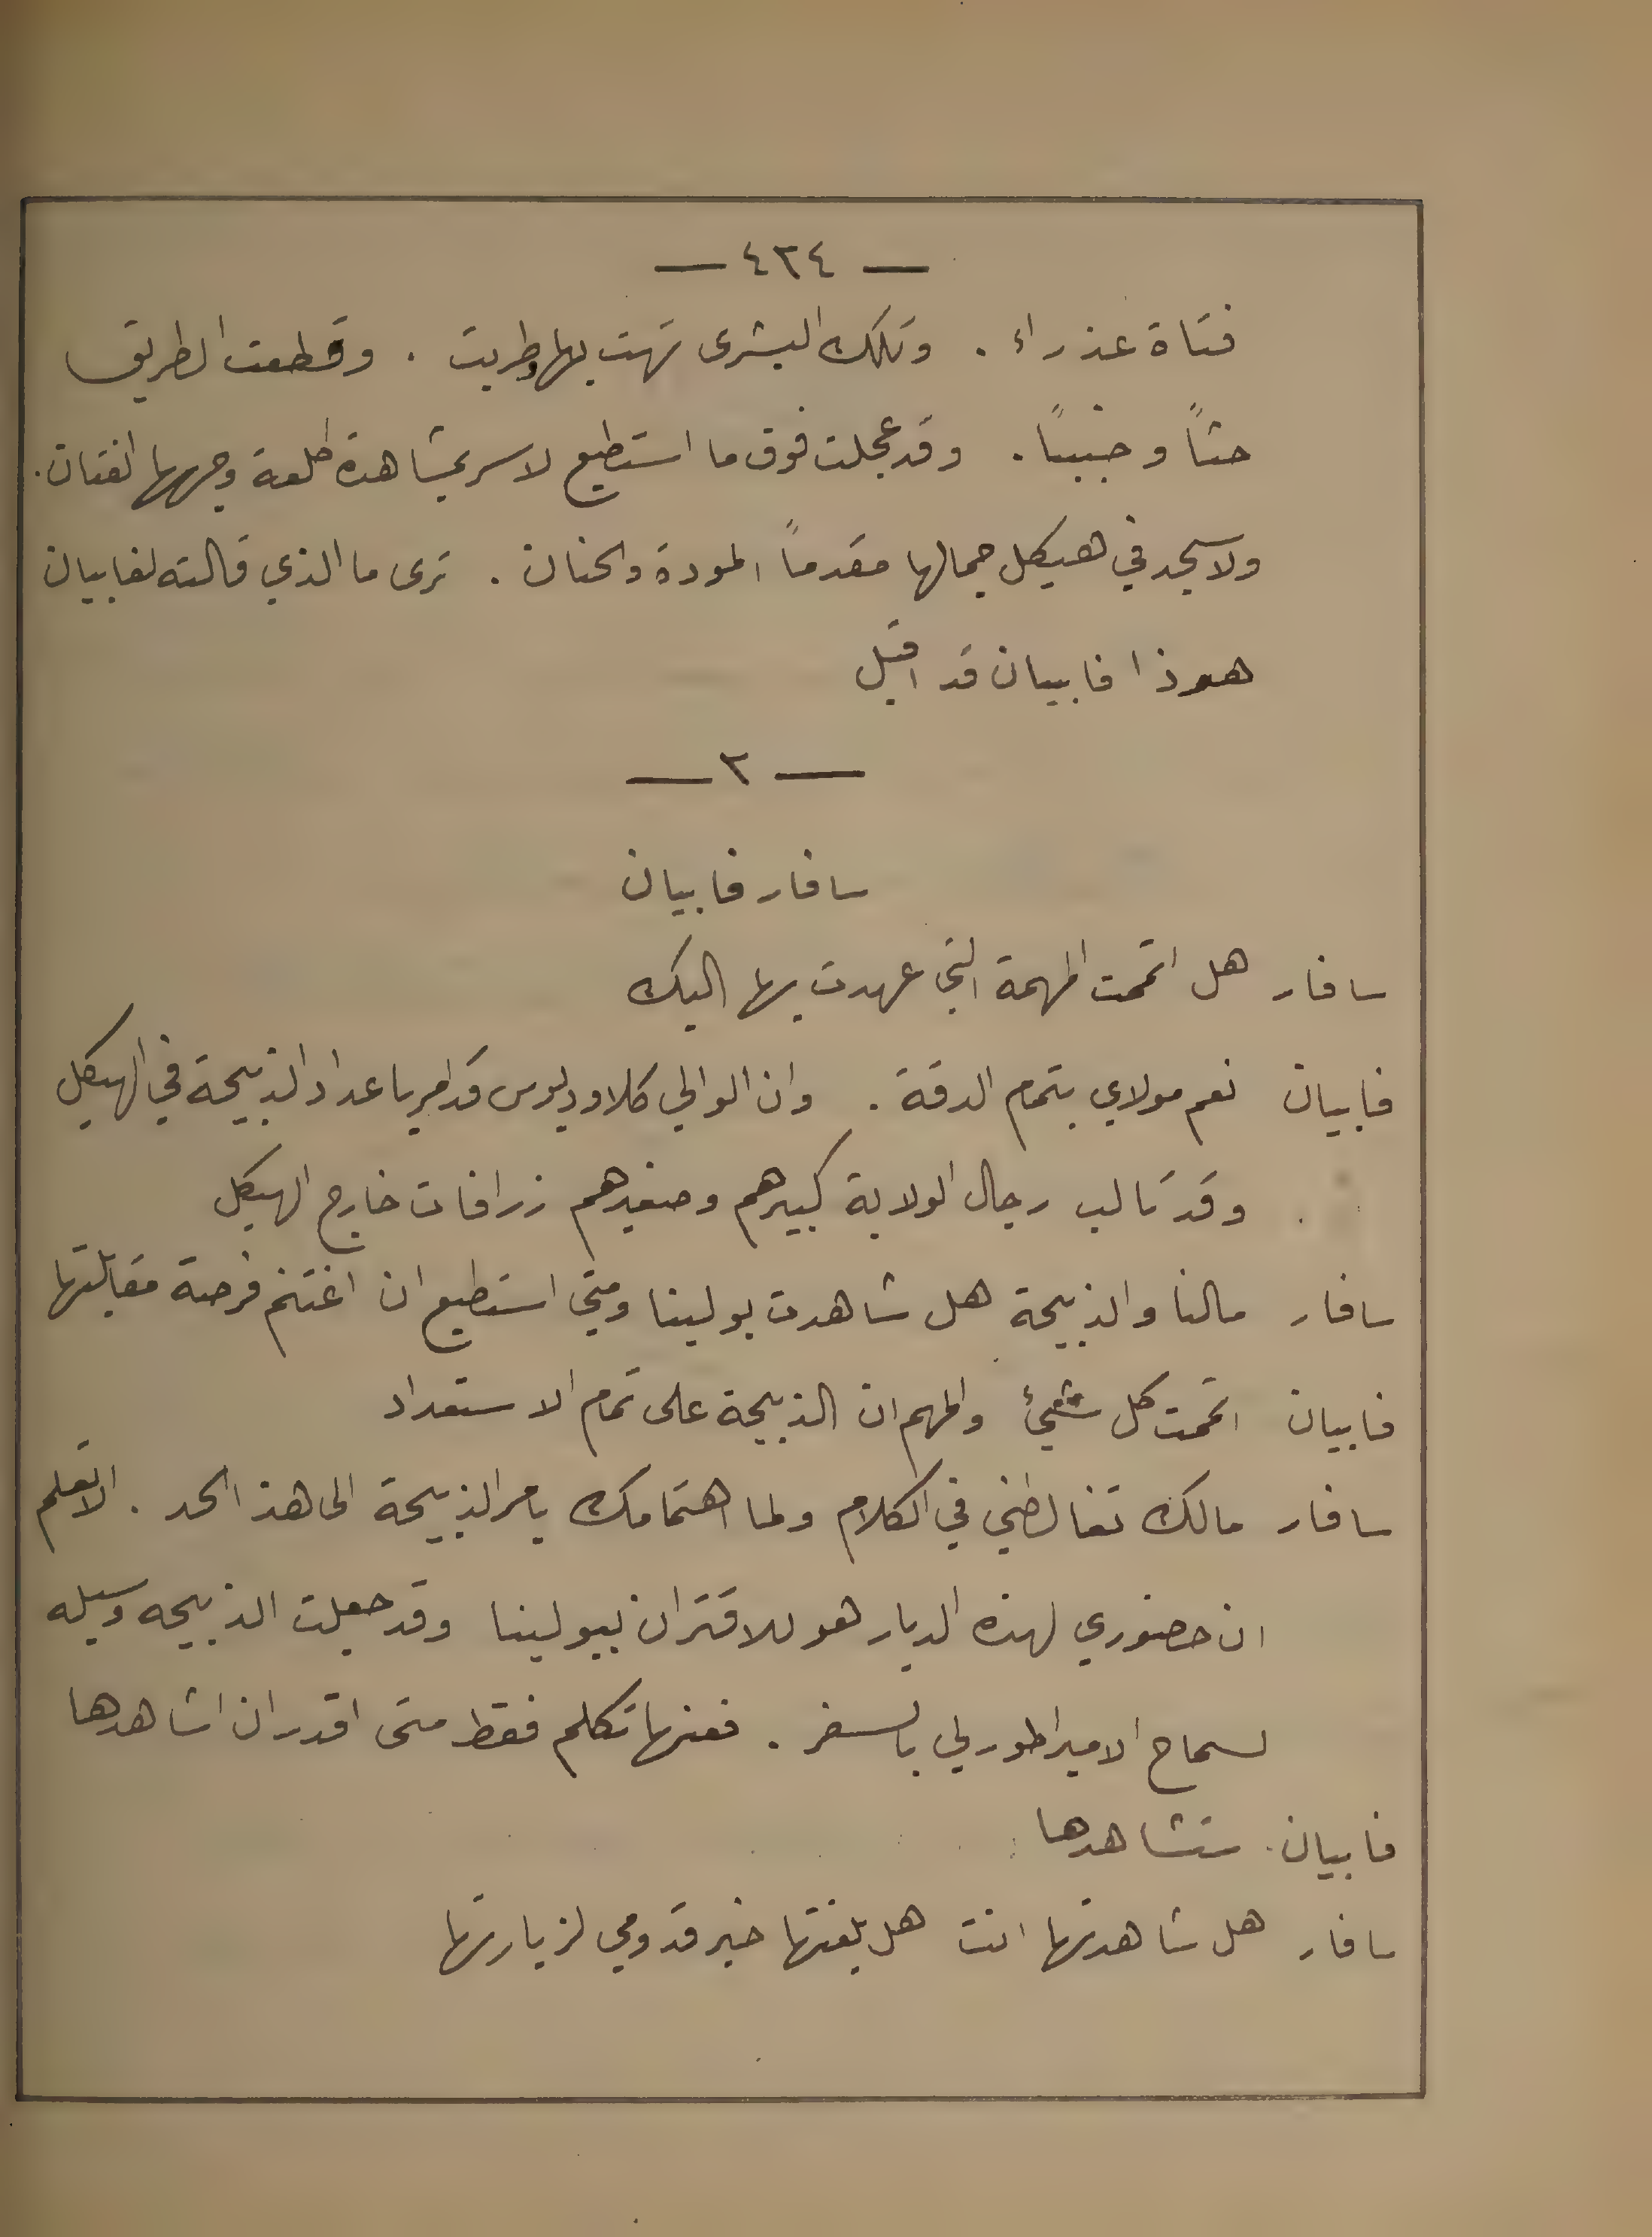 — ٤٣٤ —
فتاة عذراء . وتلك البشرى تهت بها وطربت . وقطعت الطريق
حثاً وخبباً . وقد عجلت فوق ما استطيع لاسر بمشاهدة طلعة وجهها الفتان .
ولاسجد في هيكل جمالها مقدماً المودة والحنان . ترى ما الذي قالته لفابيان
هوذا فابيان قد اقبل
— ٢ —
سافار فابيان
سافار هل اتممت المهمة التي عهدت بها اليك
فابيان نعم مولاي بتمام الدقة . وان الوالي كلاوديوس قد امر باعداد الذبيحة في الهيكل
وقد تالب رجال الولاية كبيرهم وصغيرهم زرافات خارج الهيكل
سافار مالنا والذبيحة هل شاهدت بولينا ومتى استطيع ان اغتنم فرصة مقابلتها
فابيان اتممت كل شيئ والمهم ان الذبيحة على تمام الاستعداد
سافار مالك تغالطني في الكلام ولما اهتمامك بامر الذبيحة الى هذا الحد . الا تعلم
ان حضوري لهذه الديار هو للاقتران ببولينا وقد جعلت الذبيحه وسيله
لسماح الامبراطور لي بالسفر . فعنها تكلم فقط متى اقدر ان اشاهدها
فابيان ستشاهدها
سافار هل شاهدتها انت هل بلغتها خبر قدومي لزيارتها